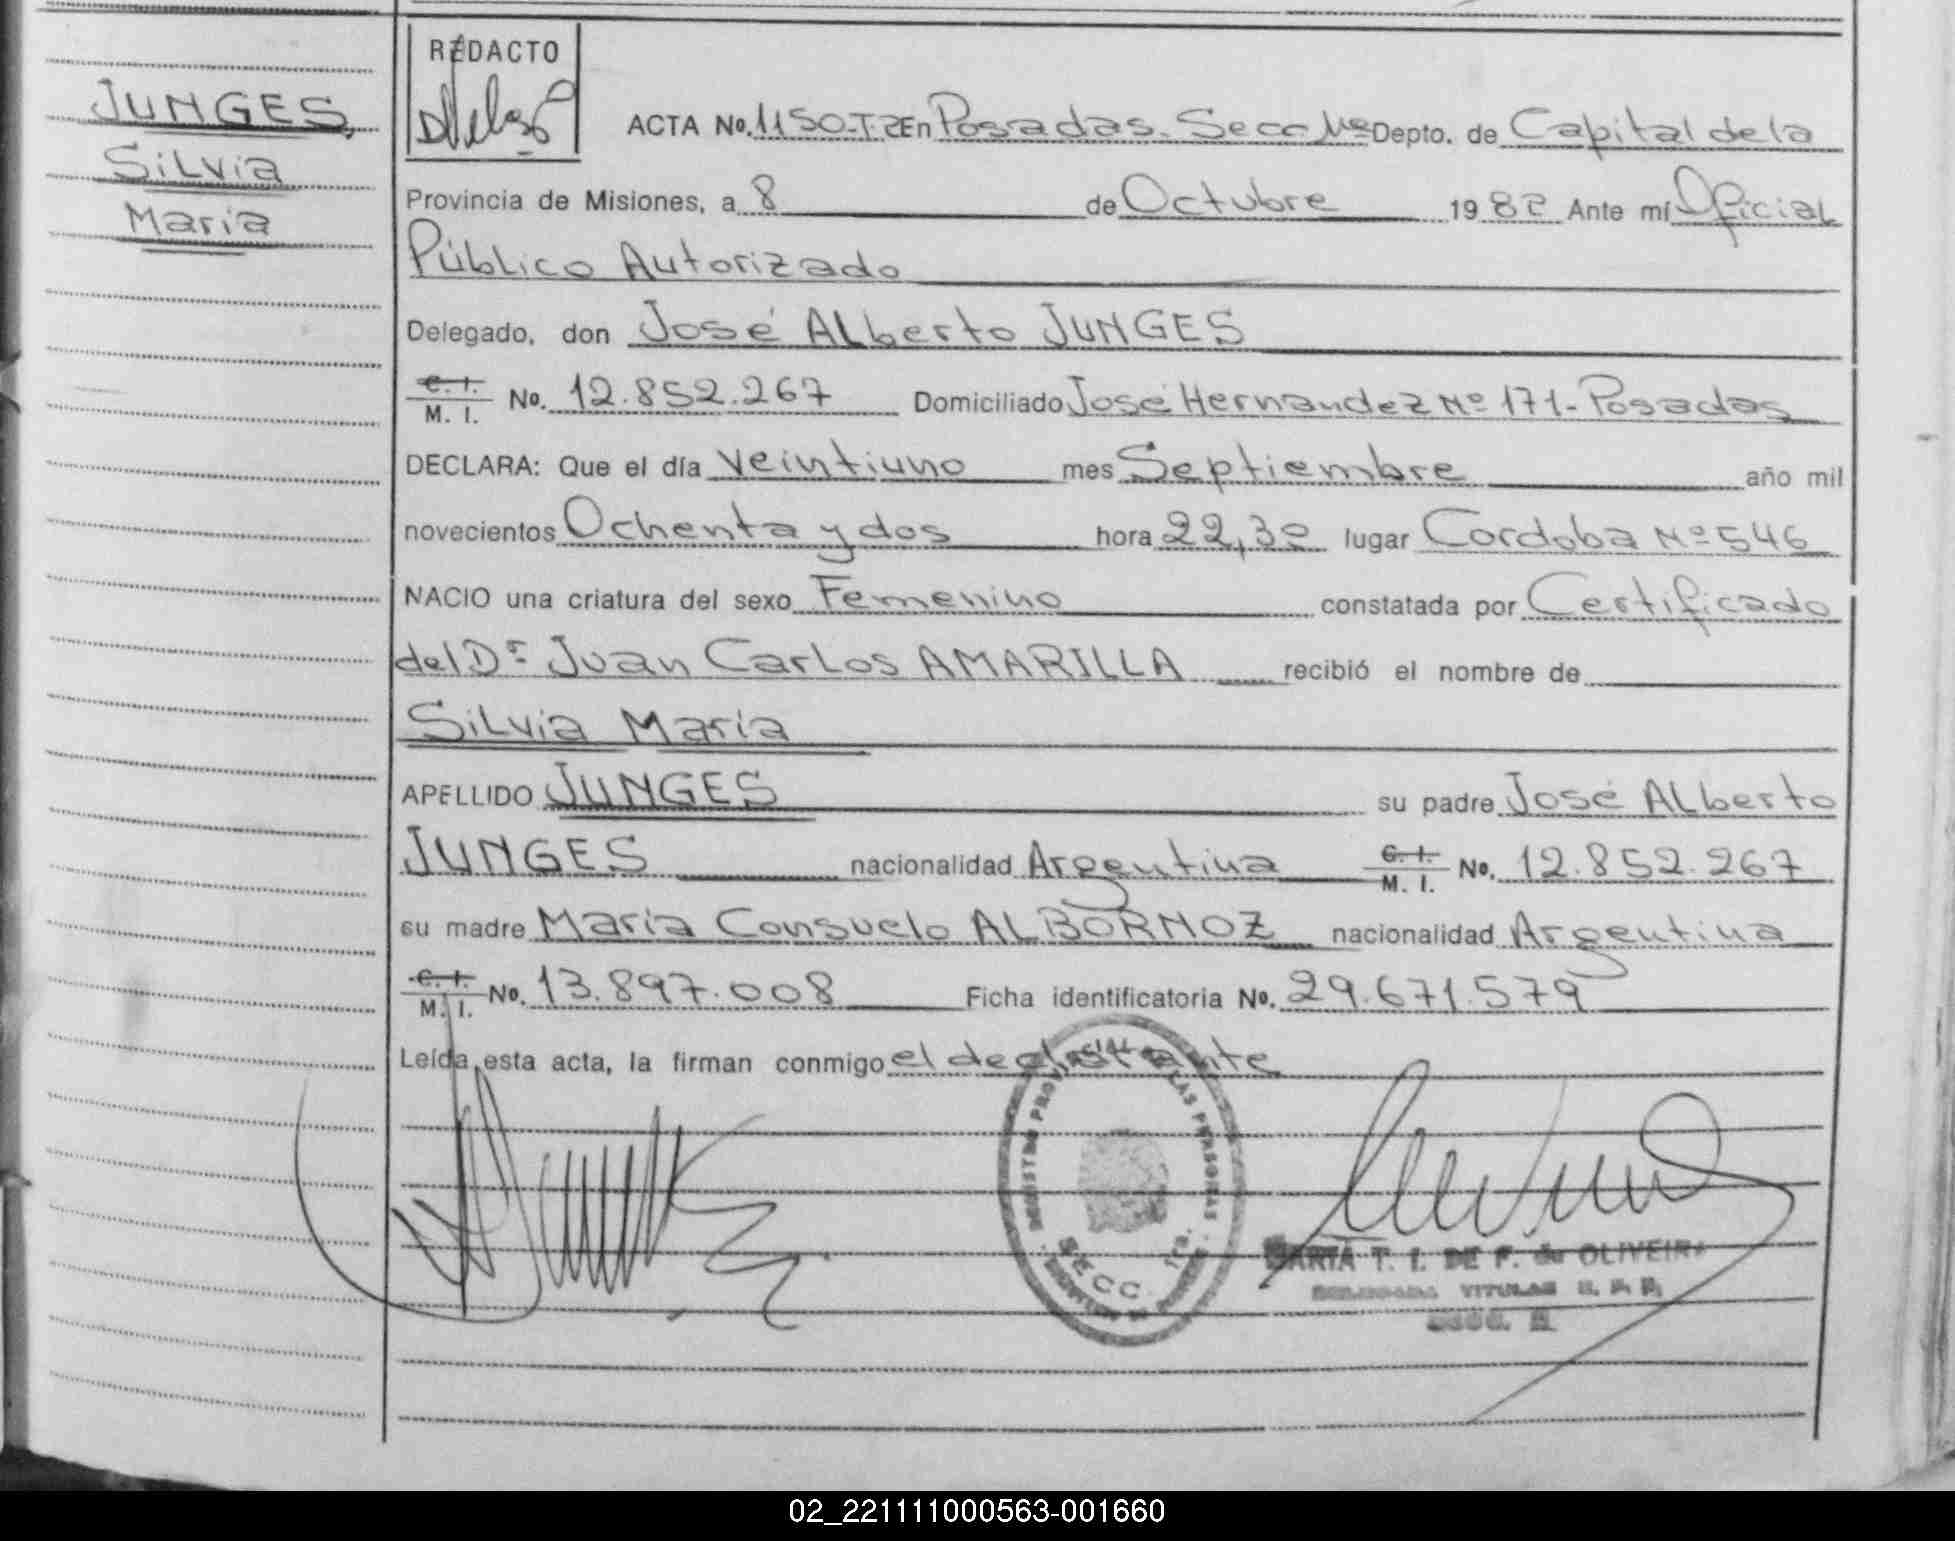 JUNGES,
Silvia
Maria
REDACTO
ACTA No. 1150-T.2 En Posadas. Secc 1ra Depto. de Capital de la
Provincia de Misiones, a 8 de Octubre 1982 Ante mí Oficial
Público Autorizado
Delegado, don José Alberto JUNGES
C. I. M. I. No. 12.852.267 Domiciliado José Hernandez Nº 171- Posadas
DECLARA: Que el día veintiuno mes Septiembre año mil
novecientos Ochenta y dos hora 22,30 lugar Cordoba Nº 546
NACIO una criatura del sexo Femenino constatada por Certificado
del Dr Juan Carlos AMARILLA recibió el nombre de
Silvia María
APELLIDO JUNGES su padre José Alberto
JUNGES nacionalidad Argentina C. I. M. I. No. 12.852.267
su madre María Consuelo ALBORNOZ nacionalidad Argentina
C. I. M. I. No. 13.897.008 Ficha identificatoria No. 29.671.579
Leída esta acta, la firman conmigo el declarante
REGISTRO PROVINCIAL DE LAS PERSONAS
SECC. 1ra.
MARTA T. I. DE F. de OLIVEIRA
DELEGADA TITULAR R. P. P.
SECC.
02_221111000563-001660